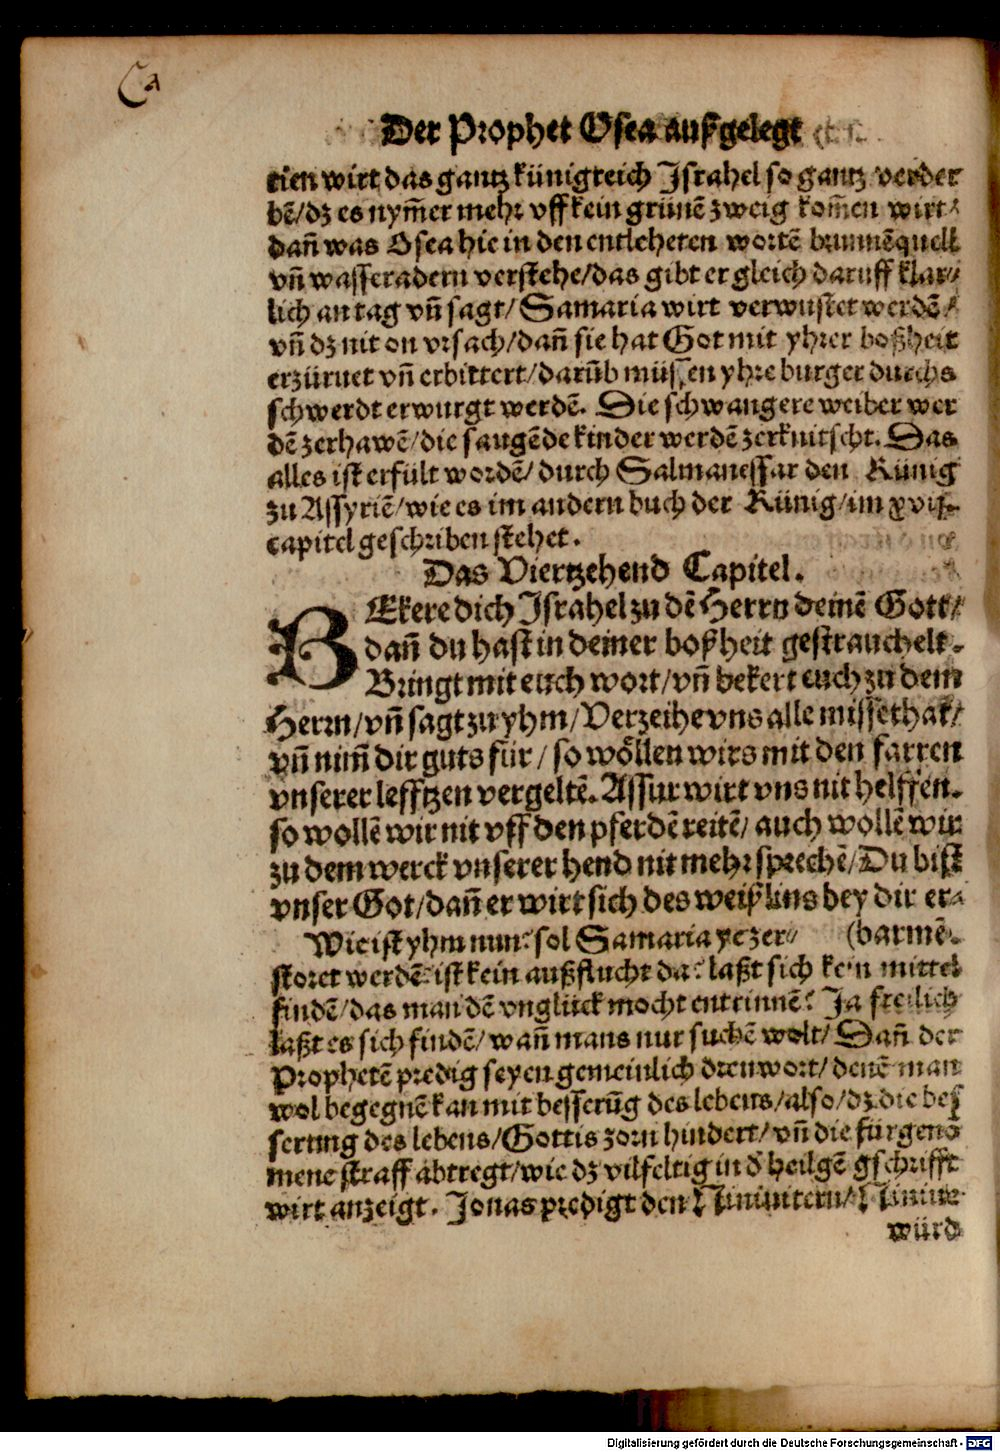 Ca
Der Prophet Osea außgelegt
rien wirt das gantz künigreich Israhel so gantz verder
bē/dz es nym̄er mehr vff kein grünē zweig kom̄en wirt/
dañ was Osea hie in den entleheten wortē brunnēquell
vñ wasseradern verstehe/das gibt er gleich daruff klar//
lich an tag vñ sagt/Samaria wirt verwustet werdē/
vñ dz nit on vrsach/dañ sie hat Got mit yhrer boßheit
erzürnet vñ erbittert/darūb müssen yhre burger durchs
schwerdt erwurgt werdē. Die schwangere weiber wer
dē zerhawē/die saugēde kinder werdē zerknitscht. Das
alles ist erfült wordē/durch Salmanessar den Künig
zu Assyriē/wie es im andern buch der Künig/im xvij.
capitel geschriben stehet.
Das Viertzehend Capitel.
BEkere dich Israhel zu dē Herrn deinē Gott/
dañ du hast in deiner boßheit gestrauchelt.
Bringt mit euch wort/vñ bekert euch zu dem
Herrn/vñ sagt zu yhm/Verzeihe vns alle missethat/
vñ nim̄ dir guts für/so wöllen wirs mit den farren
vnserer lefftzen vergeltē. Assur wirt vns nit helffen.
so wollē wir nit vff den pferdē reitē/auch wollē wir
zu dem werck vnserer hend nit mehr sprechē/Du bist
vnser Got/dañ er wirt sich des weißlins bey dir er-
Wie ist yhm nun? sol Samaria ye zer// (barmē.
storet werdē? ist kein außflucht da? laßt sich kein mittel
findē/das man dē vnglück mocht entrinnē? Ja freilich
laßt es sich findē/wañ mans nur suchē wolt/Dañ der
Prophetē predig seyen gemeinlich drenwort/denē man
wol begegnē kan mit besserūg des lebens/also/dz die bes
serung des lebens/Gottis zorn hindert/vñ die fürgeno
mene straff abtregt/wie dz vilfeltig in d' heilgē gschrifft
wirt anzeigt. Jonas predigt den Niniuitern/Niniue
würd
Digitalisierung gefördert durch die Deutsche Forschungsgemeinschaft - DFG